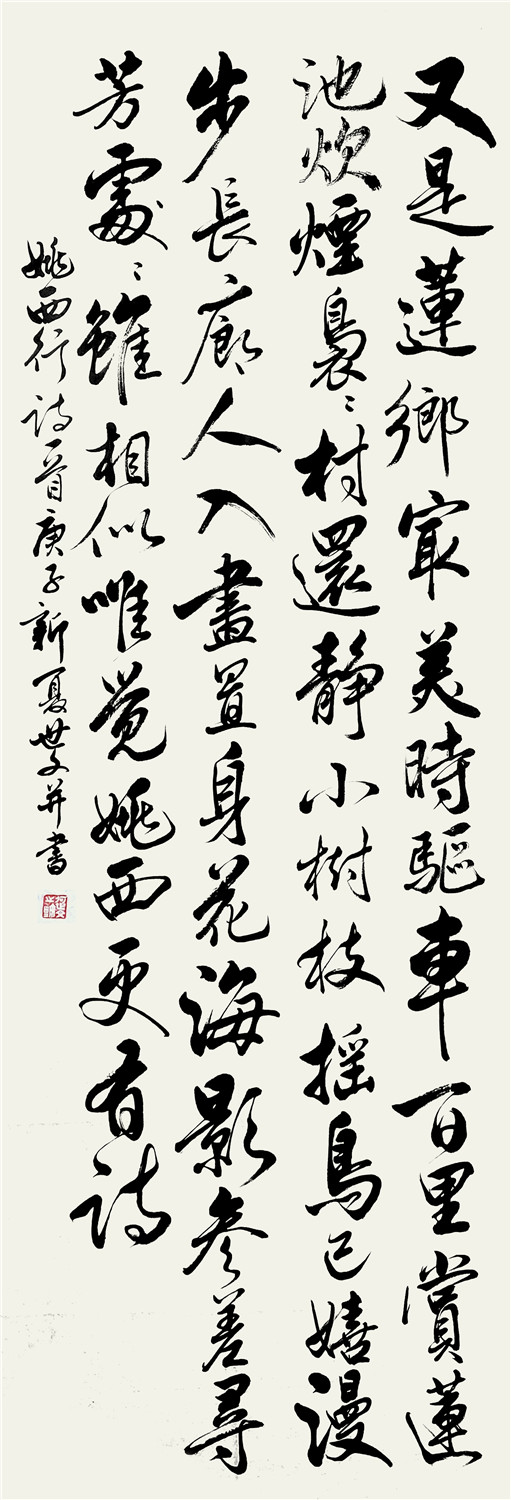 又是蓮鄉冣美時驅車百里賞蓮
池炊煙裊〻村還靜小樹枝摇鳥已嬉漫
步長廊人入畫置身花海影参差尋
芳處〻雖相似唯覺姚西更有詩
姚西行詩一首庚子新夏世文并書